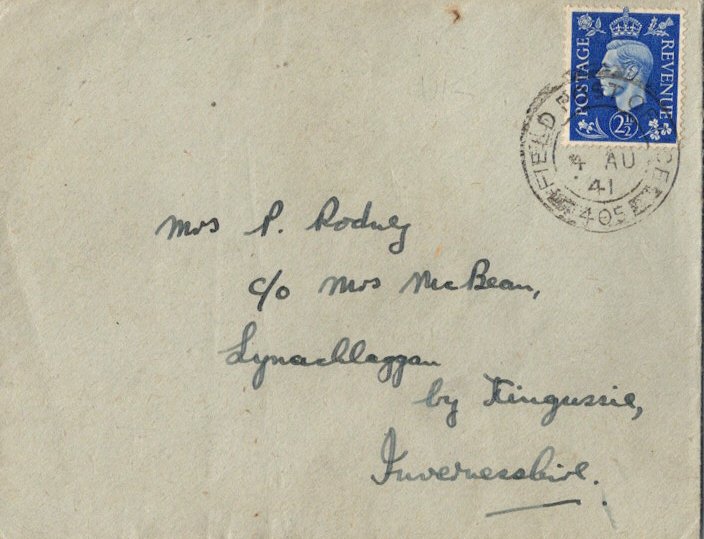 POSTAGE REVENUE
2½D
FIELD POST OFFICE
4 AU
41
405
Mrs P. Rodney
c/o Mrs McBean,
Lynachlaggan
by Kingussie,
Invernesshire.